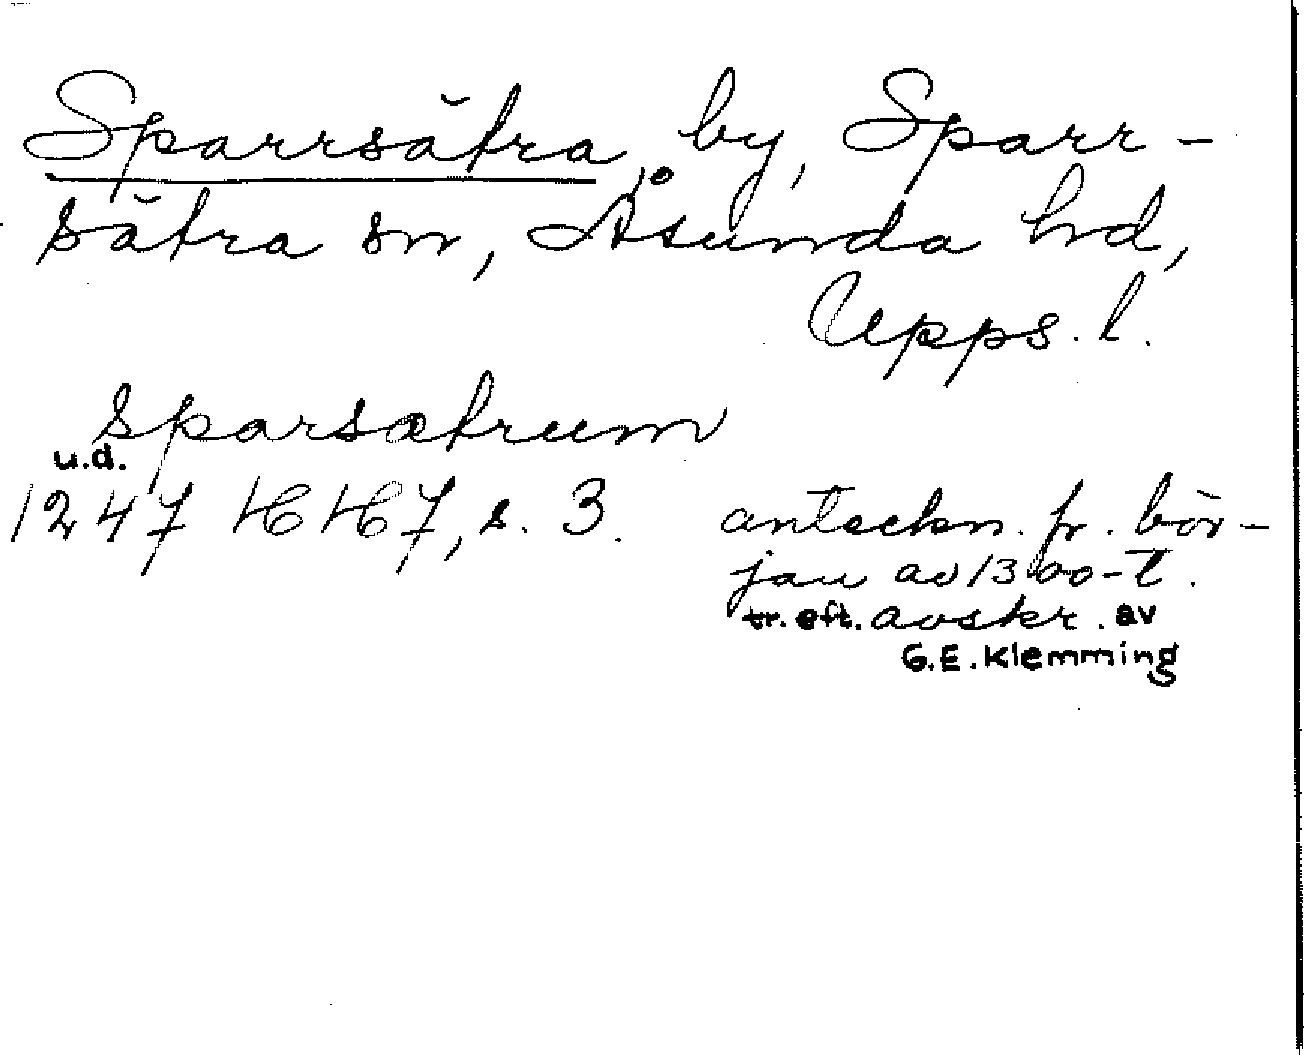 Sparrsätra, by, Sparr-
sätra sn, Åsunda hd,
Upps. l.
Sparsætrum
u.d.
1247 HH 7, s. 3. anteckn. fr. bör-
jan av 1300-t.
tr. eft. avskr. av
G.E. Klemming